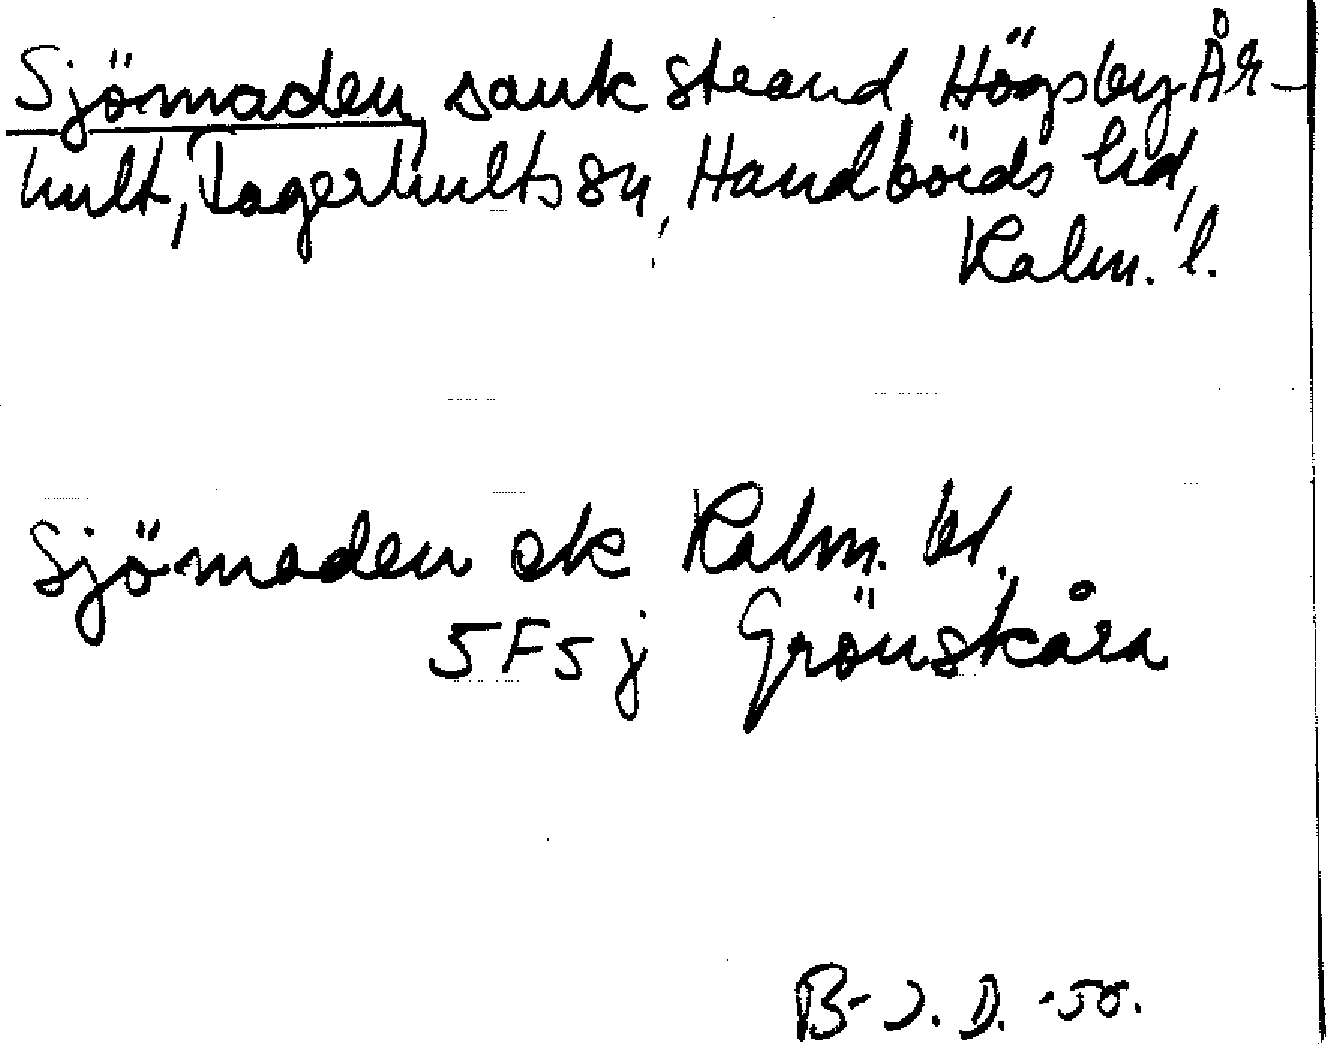 Sjömaden, sank strand Högsby År-
hult, Fagerhults sn, Handbörds hd,
Kalm. l.
Sjömaden ek Kalm. bl.
5F5j Grönskåra
B-J. D. -58.